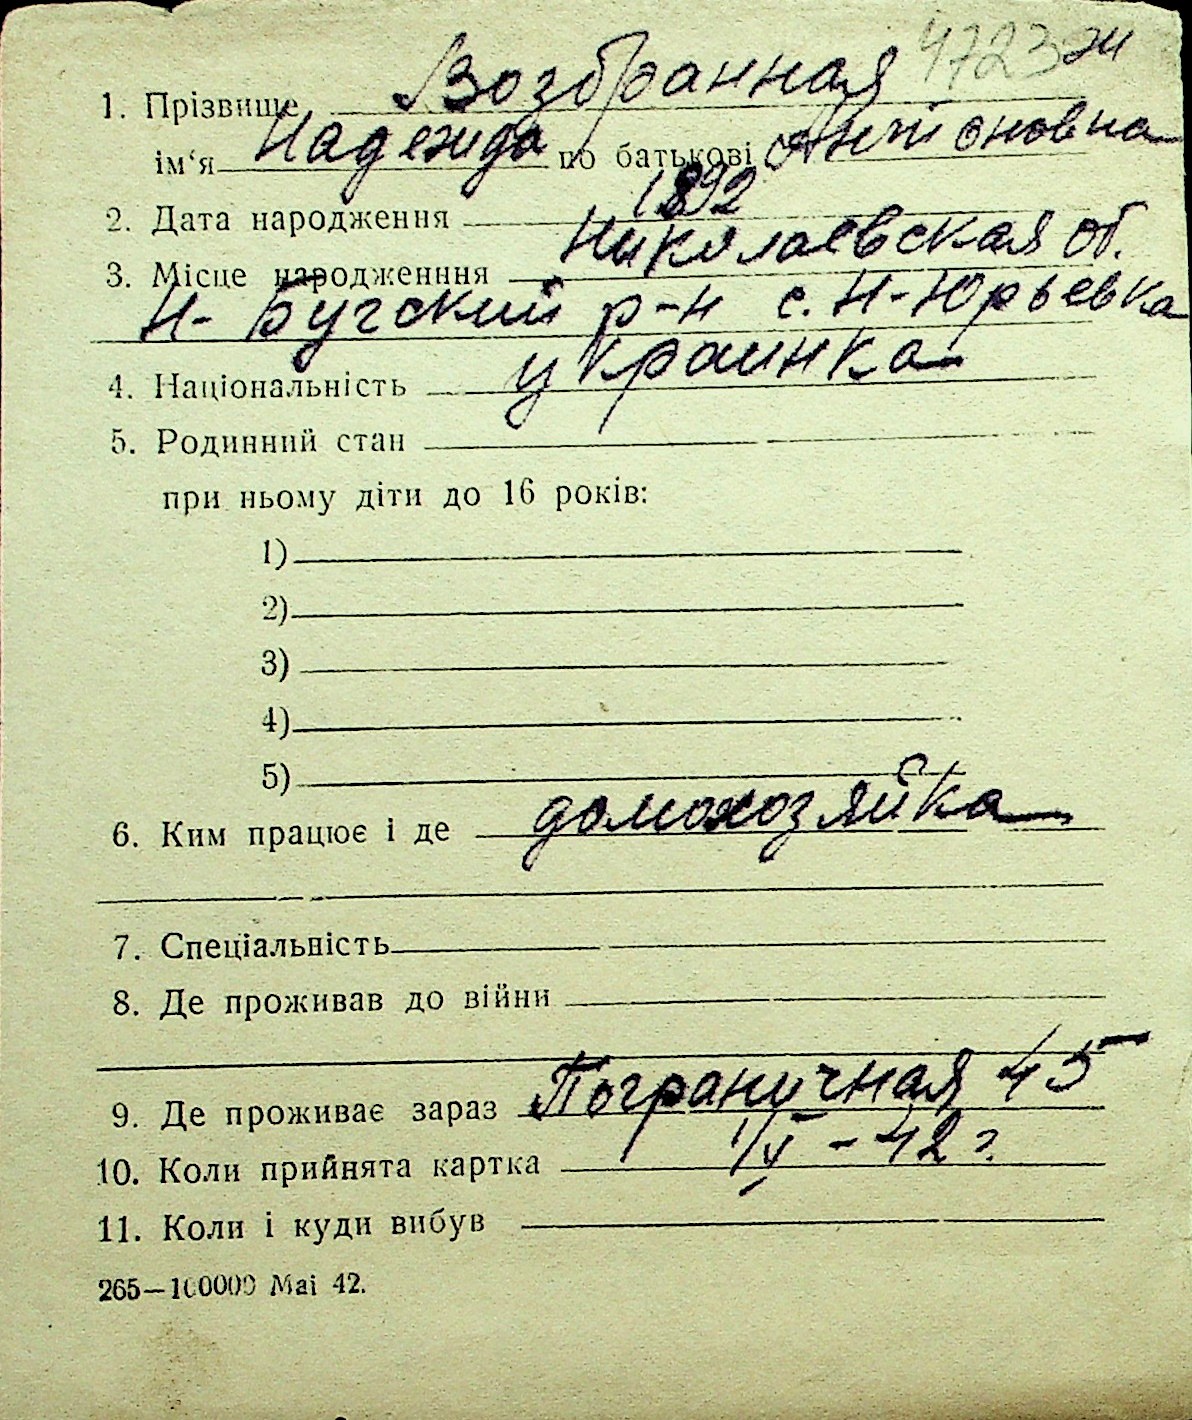 4723 ж
1. Прізвище Возбранная
ім‘я Надежда по батькові Антоновна
2. Дата народження 1892
3. Місце народженння Николаевская об.
Н- Бугский р-н с. Н-Юрьевка
4. Національність украинка
5. Родинний стан
при ньому діти до 16 років:
1)
2)
3)
4)
5)
6. Ким працює і де домохозяйка
7. Спеціальність
8. Де проживав до війни
9. Де проживає зараз Пограничная 45
10. Коли прийнята картка 1/V - 42 г.
11. Коли і куди вибув
265—100000 Mai 42.